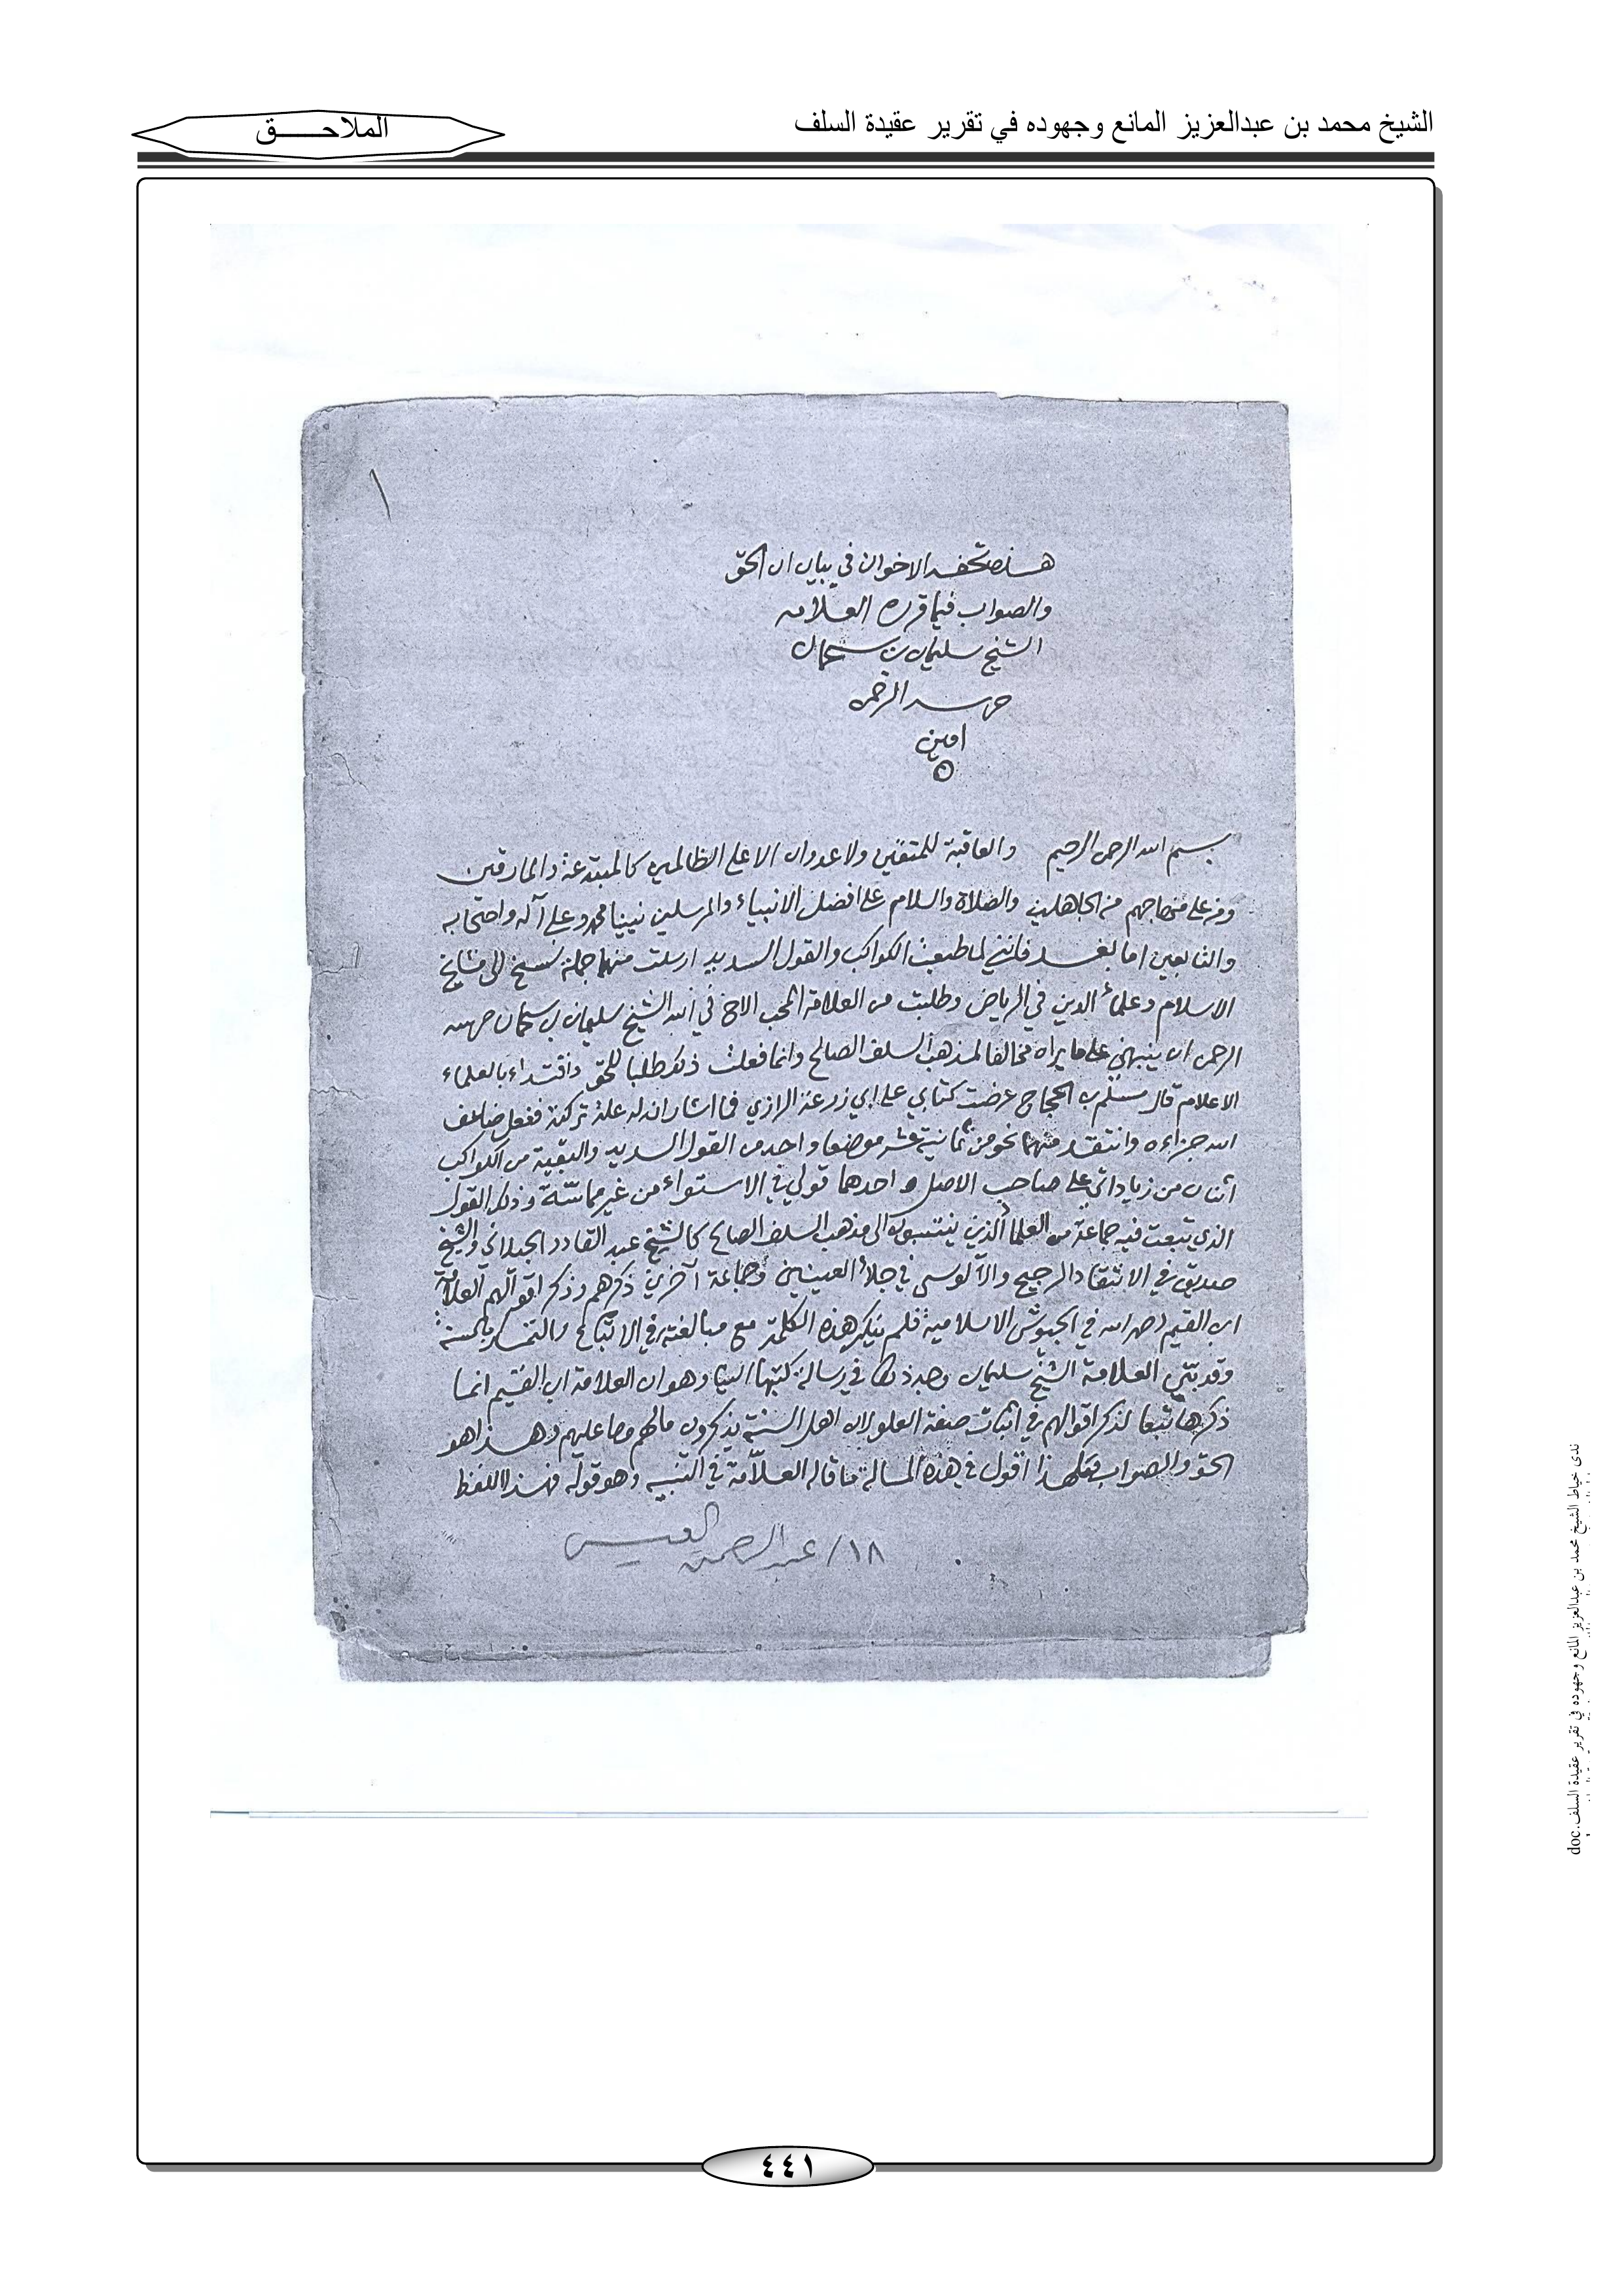 الشيخ محمد بن عبدالعزيز المانع وجهوده في تقرير عقيدة السلف
الملاحـــــق
١
هذه تحفة الاخوان في بيان ان الحق
والصواب فيما قرره العلامه
الشيخ سليمان بن سحمان
حرسه الرحمن
امين
بسم الله الرحمن الرحيم والعاقبة للمتقين ولا عدوان الا على الظالمين كالمبتدعة والمارقين
ومن على منهاجهم من الجاهلين والصلاة والسلام على افضل الانبياء والمرسلين نبينا محمد وعلى آله واصحابه
والتابعين اما بعد فانني لما طبعت الكواكب والقول السديد ارسلت منهما جملة نسخ الى مشايخ
الاسلام وعلماء الدين في الرياض وطلبت من العلامة المحب الاخ في الله الشيخ سليمان بن سحمان حرسه
الرحمن ان ينبهني على ما يراه مخالفا لمذهب السلف الصالح وانما فعلت ذلك طلبا للحق واقتداء بالعلماء
الاعلام قال مسلم بن الحجاج عرضت كتابي على ابي زرعة الرازي فما اشار ان له علة تركته ففعل ضاعف
الله جزاءه وانتقد منهما نحو من ثمانية عشر موضعا واحد من القول السديد والبقية من الكواكب
اثنان من زياداتي على صاحب الاصل احدهما قولي في الاستواء من غير مماسّة وذلك القول
الذي تبعت فيه جماعة من العلماء الذين ينتسبون الى مذهب السلف الصالح كالشيخ عبد القادر الجيلاني والشيخ
صديق في الانتقاد الرجيح والآلوسي في جلأ العينين وجماعة آخرين ذكرهم وذكر اقوالهم العلامة
ابن القيم رحمه الله في الجيوش الاسلامية فلم ينكر هذه الكلمة مع مبالغته في الاتباع والتمسك بالسنة
وقد بين العلامة الشيخ سليمان وجه ذلك في رسالة كتبها الينا وهو ان العلامة ابن القيم انما
ذكرها تبعا لذكر اقوالهم في اثبات صفة العلو لان اهل السنة يذكرون مالهم وما عليهم وهذا هو
الحق والصواب فلهذا اقول في هذه المسالة ما قاله العلّامة في التنبيه وهو قوله فهذا اللفظ
١٨/ عبدالرحمن
٤٤١
ندى خياط الشيخ محمد بن عبدالعزيز المانع وجهوده في تقرير عقيدة السلف.doc